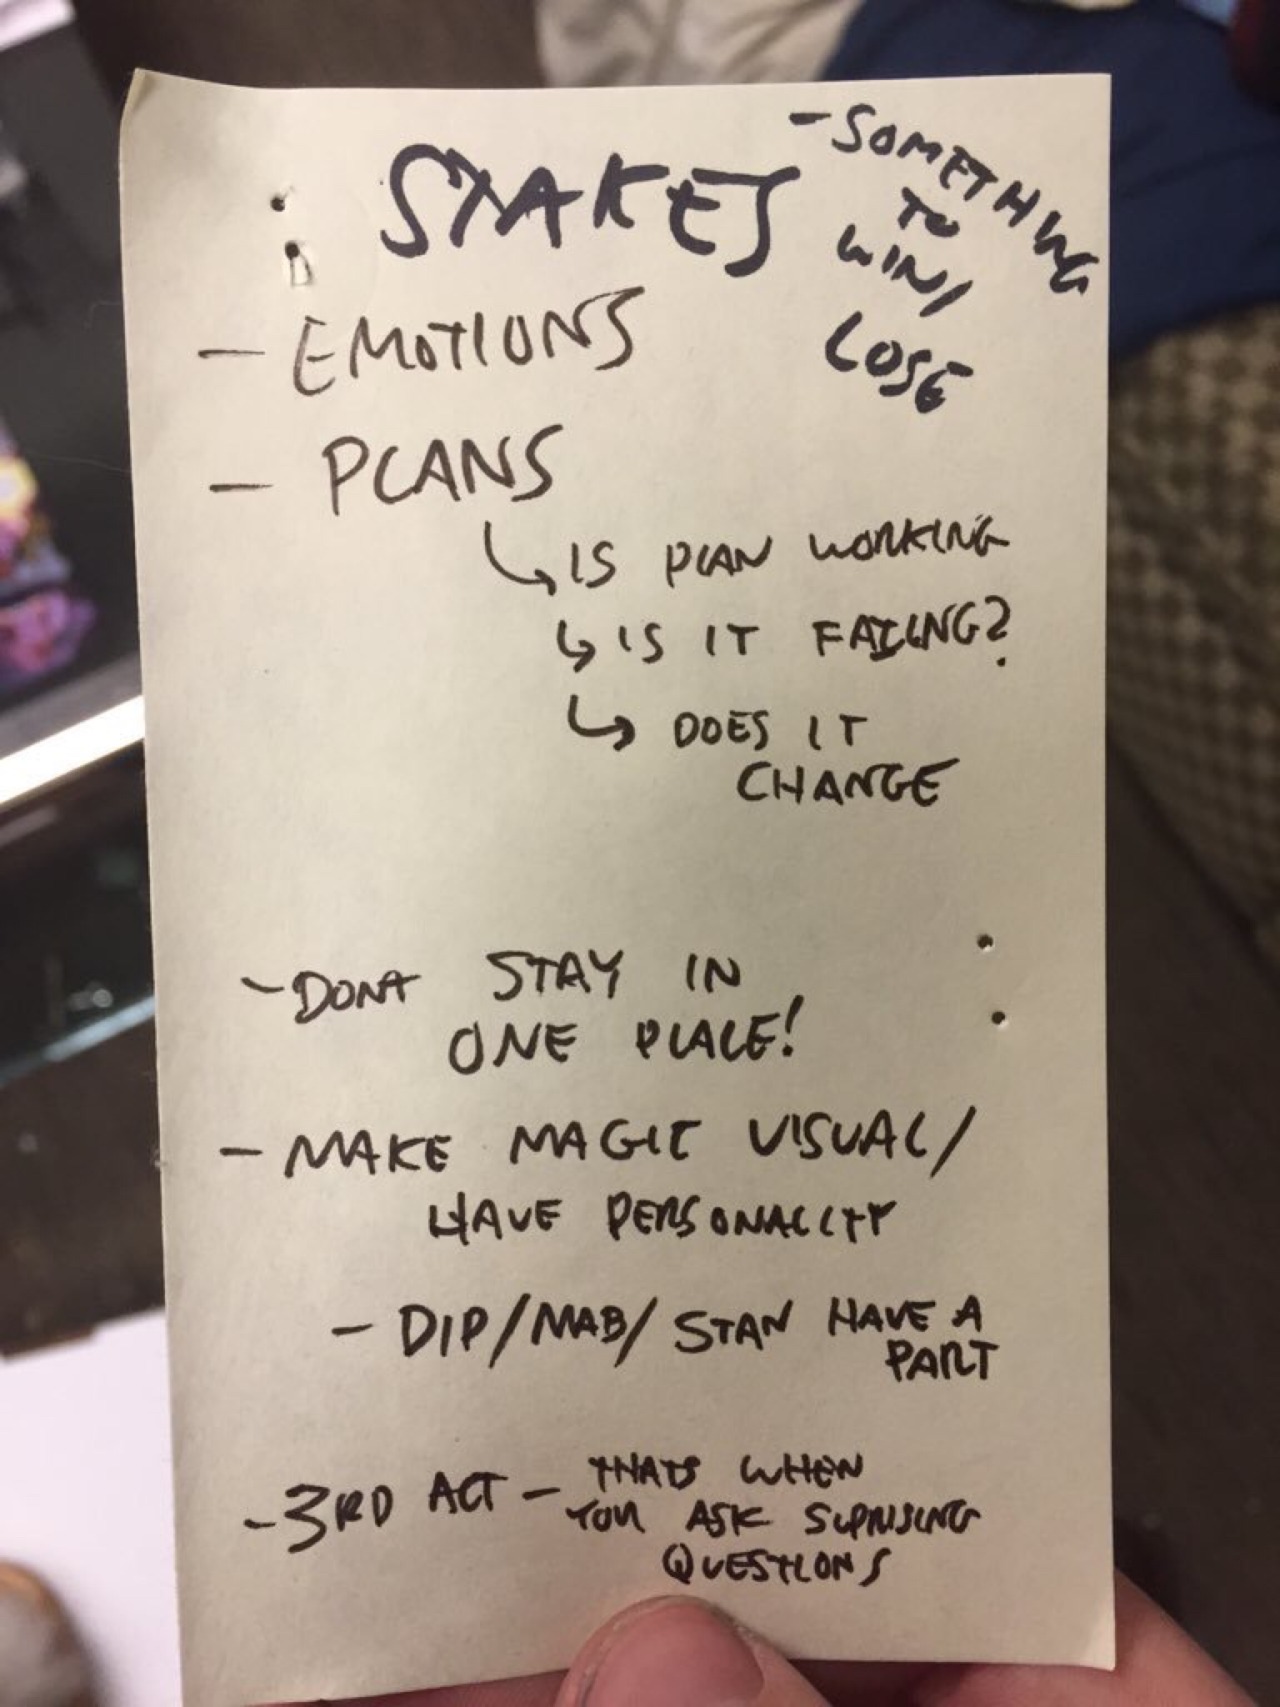 STAKES
- SOMETHING
TO
WIN/
LOSE
- EMOTIONS
- PLANS
↳ IS PLAN WORKING
↳ IS IT FAILING?
↳ DOES IT
CHANGE
- DONT STAY IN
ONE PLACE!
- MAKE MAGIC VISUAL/
HAVE PERSONALITY
- DIP/MAB/STAN HAVE A
PART
- 3RD ACT - THATS WHEN
YOU ASK SUPRISING
QUESTIONS